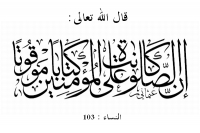 قال الله تعالى :
إن الصلاة كانت على المؤمنين كتابا موقوتا
النساء : 103